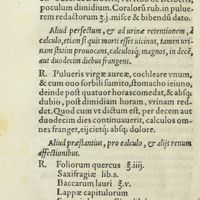 poculum dimidium. Coraloru̅ rub.in pulue-
rem redactorum ʒ.j.misce & bibendu̅ dato.
Aliud perfectum, & ad urinæ retentionem, à
dato, etiam si quis morti esset uicinus, tamen uri-
nam statim prouocent, calculosq́; magnos, in dece̅,
aut duodecim diebus frangens.
R. Pulueris virgæ aureæ, cochleare vnum,
& cum ouo sorbili sumito, stomacho ieiuno,
deinde post quatuor horas comedat, & absq́;
dubio, post dimidiam horam, vrinam red-
det. Quod cum vt dictum est, per decem aut
duodecim dies continuauerit, calculos om-
nes franget, eijcietq́; absq́; dolore.
Aliud præstantius, pro calculo, & alijs renum
affectionibus.
R. Foliorum quercus ℥.iiij.
Saxifragiæ lib.s.
Baccarum lauri ℥.v.
Lappæ capitulorum